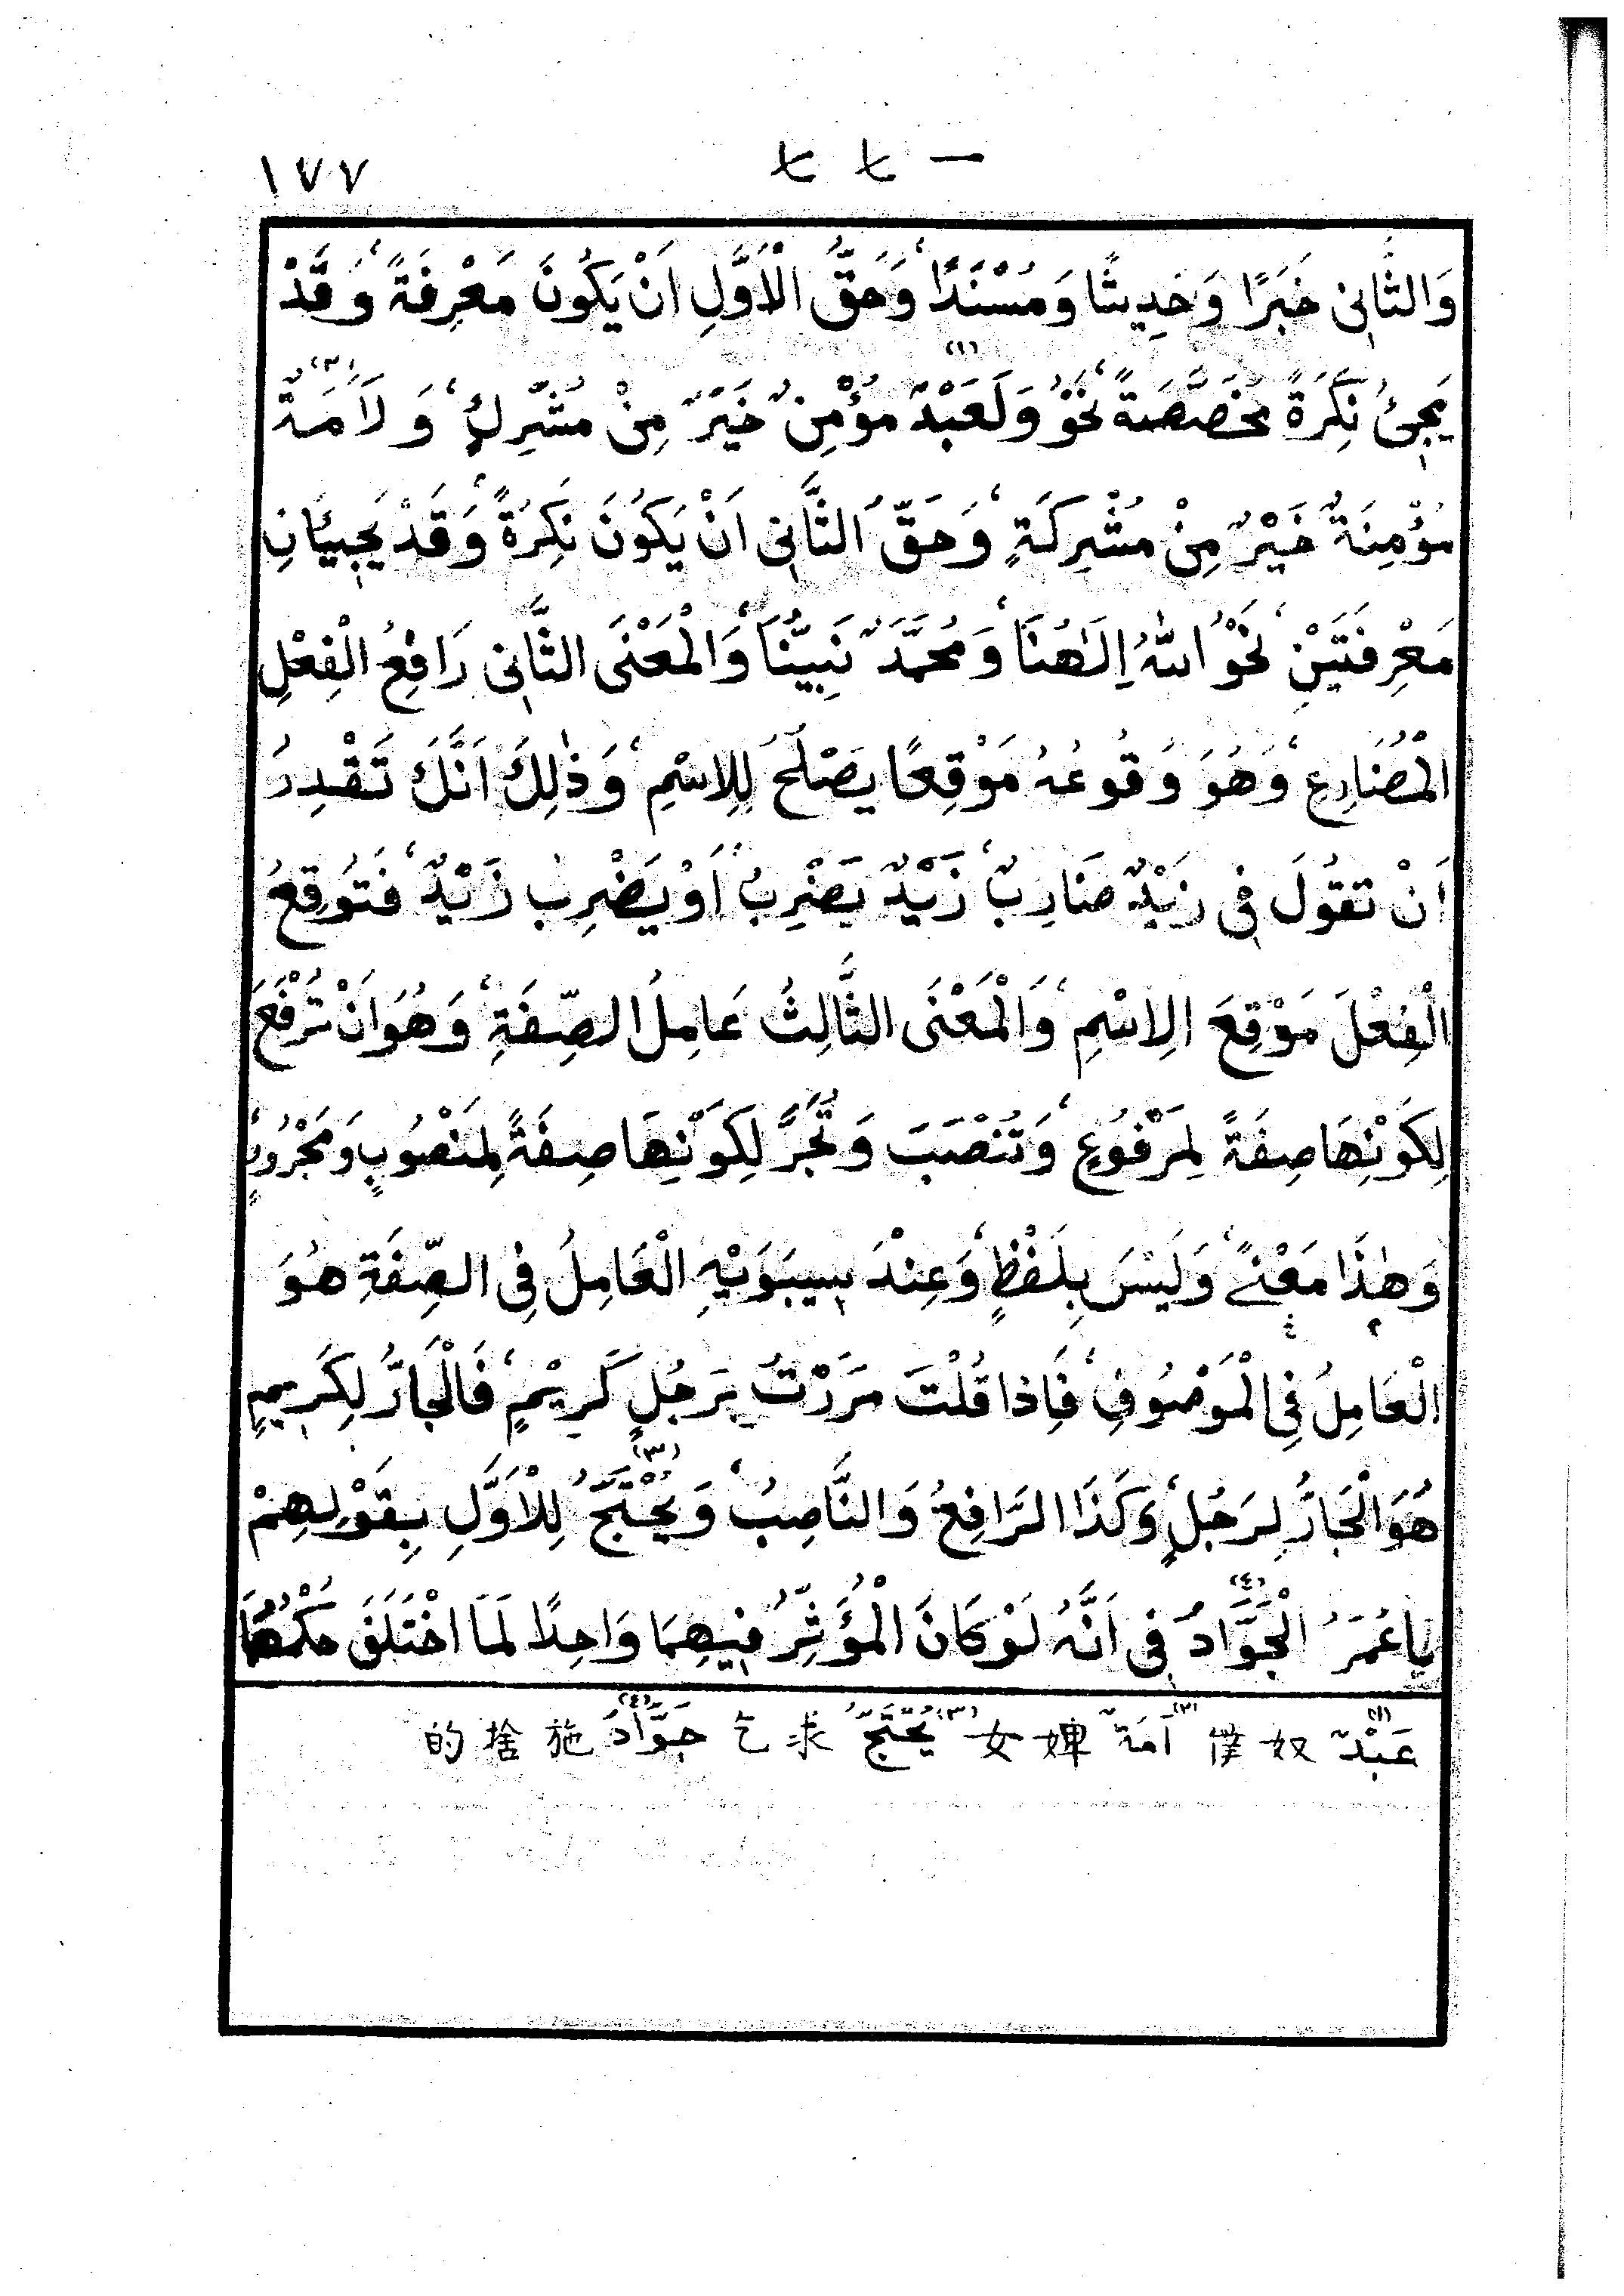 一七七 ١٧٧
وَالثَّانِي خَبَرًا وَحَدِيثًا وَمُسْنَدًا وَحَقُّ الْاَوَّلِ اَنْ يَكُونَ مَعْرِفَةً وَقَدْ
يَجِئُ نَكِرَةً مُخَصَّصَةً نَحْوُ وَلَعَبْدٌ (١) مُؤْمِنٌ خَيْرٌ مِنْ مُشْرِكٍ وَلَاَمَةٌ (٢)
مُؤْمِنَةٌ خَيْرٌ مِنْ مُشْرِكَةٍ وَحَقُّ الثَّانِي اَنْ يَكُونَ نَكِرَةً وَقَدْ يَجِيئَانِ
مَعْرِفَتَيْنِ نَحْوُ اللّٰهُ اِلٰهُنَا وَمُحَمَّدٌ نَبِيُّنَا وَالْمَعْنَى الثَّانِي رَافِعُ الْفِعْلِ
الْمُضَارِعِ وَهُوَ وُقُوعُهُ مَوْقِعًا يَصْلَحُ لِلِاسْمِ وَذٰلِكَ اَنَّكَ تَقْدِرُ
اَنْ تَقُولَ فِي زَيْدٌ ضَارِبٌ زَيْدٌ يَضْرِبُ اَوْ يَضْرِبُ زَيْدٌ فَتُوقِعُ
الْفِعْلَ مَوْقِعَ الِاسْمِ وَالْمَعْنَى الثَّالِثُ عَامِلُ الصِّفَةِ وَهُوَ اَنْ تُرْفَعَ
لِكَوْنِهَا صِفَةً لِمَرْفُوعٍ وَتُنْصَبَ وَتُجَرَّ لِكَوْنِهَا صِفَةً لِمَنْصُوبٍ وَمَجْرُورٍ
وَهٰذَا مَعْنًى وَلَيْسَ بِلَفْظٍ وَعِنْدَ سِيبَوَيْهِ الْعَامِلُ فِي الصِّفَةِ هُوَ
الْعَامِلُ فِي الْمَوْصُوفِ فَاِذَا قُلْتَ مَرَرْتُ بِرَجُلٍ كَرِيْمٍ فَالْجَارُّ لِكَرِيمٍ
هُوَ الْجَارُّ لِرَجُلٍ وَكَذَا الرَّافِعُ وَالنَّاصِبُ وَيُحْتَجُّ (٣) لِلْاَوَّلِ بِقَوْلِهِمْ
يَا عُمَرُ الْجَوَّادُ (٤) فِي اَنَّهُ لَوْ كَانَ الْمُؤَثِّرُ فِيهِمَا وَاحِدًا لَمَا اخْتَلَفَ حُكْمُهُمَا
(١) عَبْدٌ 奴僕 (٢) اَمَةٌ 婢女 (٣) يُحْتَجُّ 求乞 (٤) جَوَّادُ 施捨的